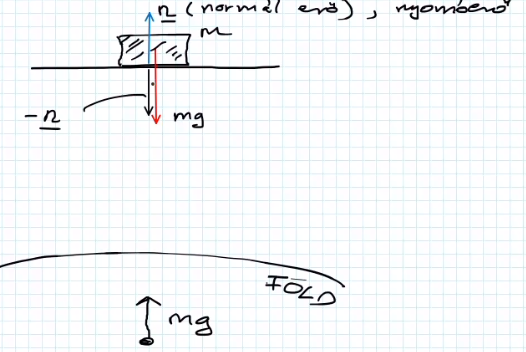 n (normál erő), nyomóerő
m
-n
mg
FÖLD
mg